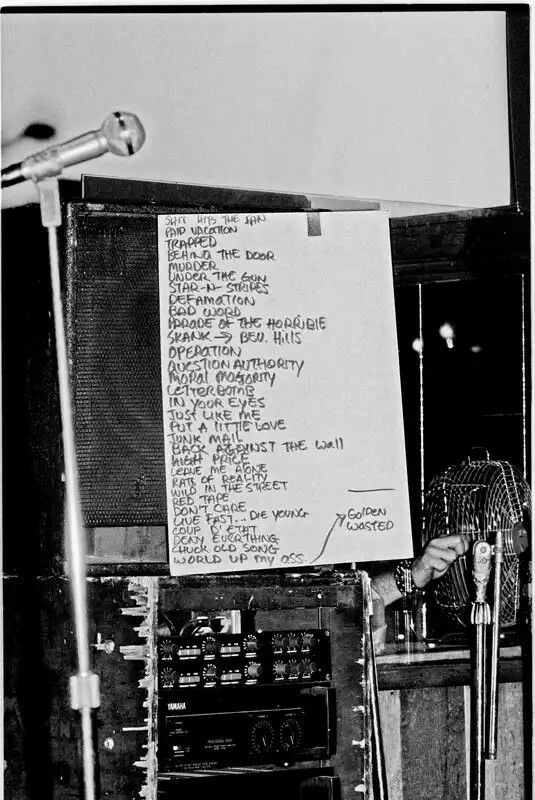 SHIT HITS THE FAN
PAID VACATION
TRAPPED
BEHIND THE DOOR
MURDER
UNDER THE GUN
STAR-N-STRIPES
DEFAMATION
BAD WORD
PARADE OF THE HORRIBLE
SKANK → BEV. Hills
OPERATION
QUESTION AUTHORITY
MORAL MAJORITY
LETTERBOMB
IN YOUR EYES
JUST LIKE ME
PUT A LITTLE LOVE
JUNK MAIL
BACK AGAINST THE WALL
HIGH PRICE
LEAVE ME ALONE
RATS OF REALITY
WILD IN THE STREET
RED TAPE
DON'T CARE
LIVE FAST... DIE YOUNG
COUP D' ETAT
DENY EVERTHING
CHUCK OLD SONG
WORLD UP MY ASS.
GOLDEN
WASTED
YAMAHA